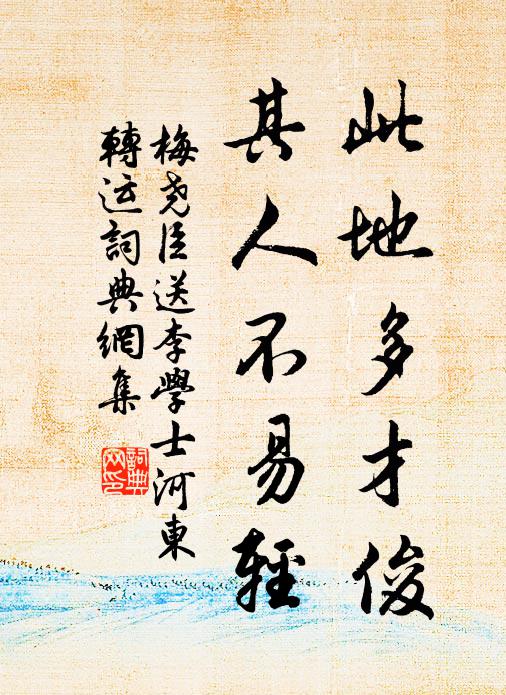 此地多才俊
其人不易輕
梅尧臣送李學士河東
轉运詞典網集
詞典
网印